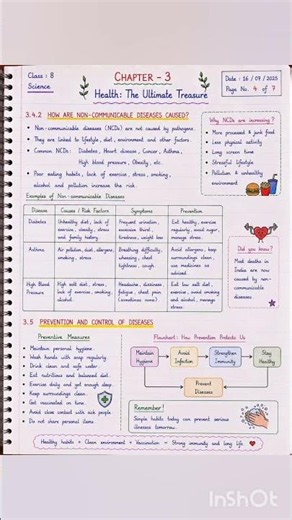 Class : 8
Science
CHAPTER - 3
Health: The Ultimate Treasure
Date : 16 / 07 / 2025
Page No. 4 of 7
3.4.2 HOW ARE NON-COMMUNICABLE DISEASES CAUSED?
• Non-communicable diseases (NCDs) are not caused by pathogens.
• They are linked to lifestyle, diet, environment and other factors.
• Common NCDs: Diabetes, Heart disease, Cancer, Asthma,
High blood pressure, Obesity, etc.
• Poor eating habits, lack of exercise, stress, smoking,
alcohol and pollution increase the risk.
Why NCDs are increasing?
• More processed & junk food
• Less physical activity
• Long screen time
• Stressful lifestyle
• Pollution & unhealthy
environment
Examples of Non-communicable Diseases
Disease
Causes / Risk Factors
Symptoms
Prevention
Diabetes
Unhealthy diet, lack of
exercise, obesity, stress
and family history
Frequent urination,
excessive thirst,
tiredness, weight loss
Eat healthy, exercise
regularly, avoid sugar,
manage stress.
Asthma
Air pollution, dust, allergens,
smoking, stress
Breathing difficulty,
wheezing, chest
tightness, cough
Avoid allergens, keep
surroundings clean,
use medicines as
advised.
High Blood
Pressure
High salt diet, stress,
lack of exercise, smoking,
alcohol
Headache, dizziness,
fatigue, chest pain
(sometimes none)
Eat low salt diet,
exercise, avoid smoking
and alcohol, manage
stress.
Did you know?
Most deaths in
India are now
caused by
non-
communicable
diseases
3.5 PREVENTION AND CONTROL OF DISEASES
Preventive Measures
• Maintain personal hygiene.
• Wash hands with soap regularly.
• Drink clean and safe water.
• Eat nutritious and balanced diet.
• Exercise daily and get enough sleep.
• Keep surroundings clean.
• Get vaccinated on time.
• Avoid close contact with sick people.
• Do not share personal items.
Flowchart: How Prevention Protects Us
Maintain
Hygiene
Avoid
Infection
Strengthen
Immunity
Stay
Healthy
Prevent
Diseases
Remember!
Simple habits today can prevent serious
illnesses tomorrow.
Healthy habits + Clean environment + Vaccination = Strong immunity and long life
InShOt